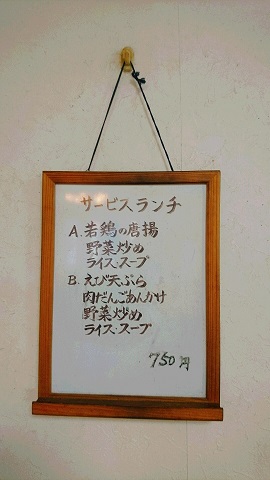 サービスランチ
A. 若鶏の唐揚
野菜炒め
ライス・スープ
B. えび天ぷら
肉だんごあんかけ
野菜炒め
ライス・スープ
750円